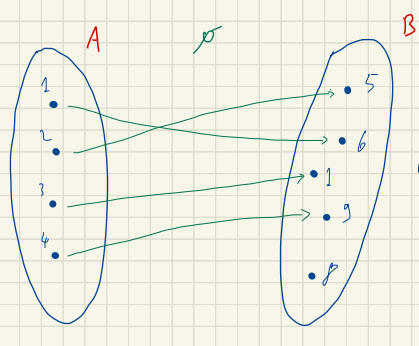 A
B
1
2
3
4
5
6
1
9
8